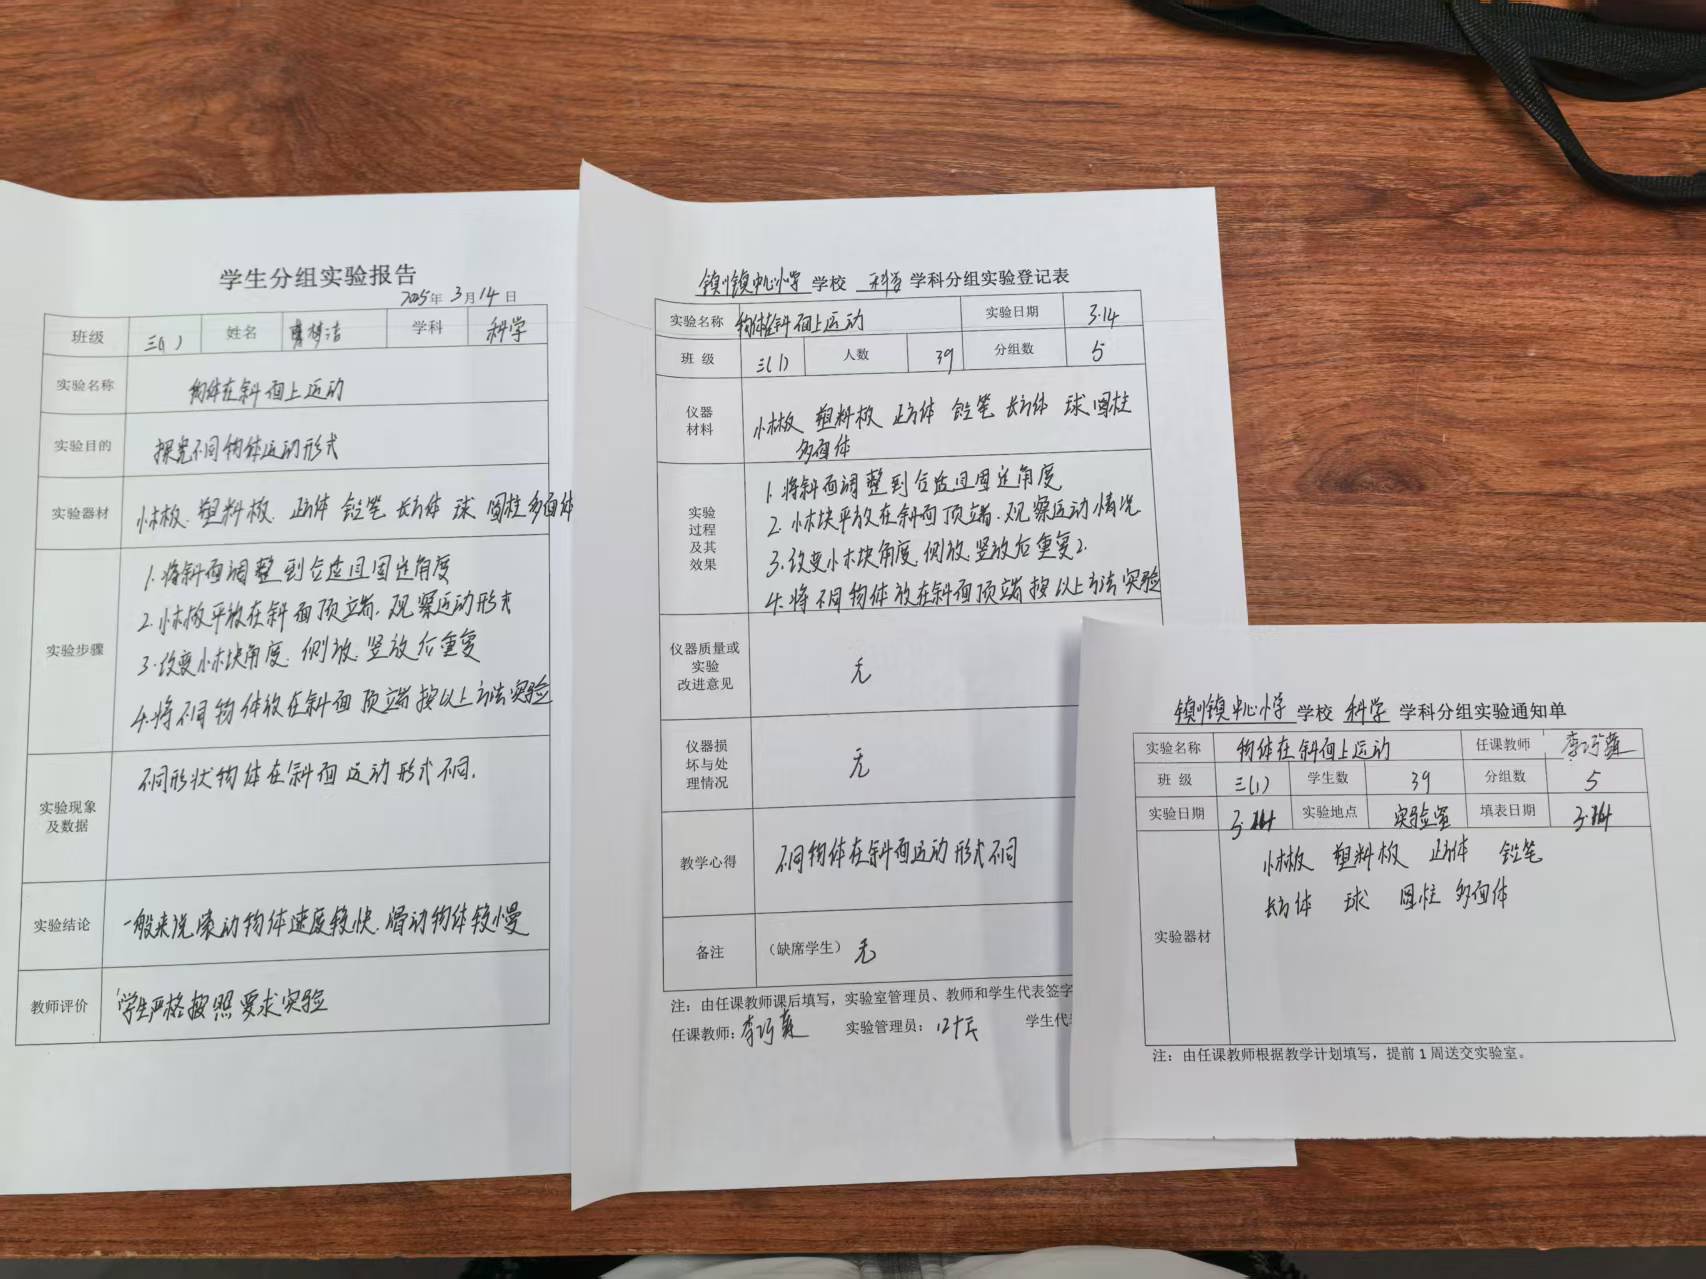 学生分组实验报告
2025年 3月14日
班级 三(1) 姓名 学科 科学
实验名称 物体在斜面上运动
实验目的 探究不同物体运动形式
实验器材 小木板 塑料板 正方体 铅笔 长方体 球 圆柱 多面体
实验步骤
1.将斜面调整到合适且固定角度
2.小木板平放在斜面顶端.观察运动形式
3.改变小木块角度.侧放.竖放后重复
4.将不同物体放在斜面顶端按以上方法实验
实验现象
及数据
不同形状物体在斜面运动形式不同.
实验结论 一般来说滚动物体速度较快.滑动物体较慢
教师评价 学生严格按照要求实验
镇川镇中心小学 学校 科学 学科分组实验登记表
实验名称 物体在斜面上运动 实验日期 3.14
班 级 三(1) 人数 39 分组数 5
仪器
材料
小木板 塑料板 正方体 铅笔 长方体 球 圆柱
多面体
实验
过程
及其
效果
1.将斜面调整到合适且固定角度
2.小木块平放在斜面顶端.观察运动情况
3.改变小木块角度.侧放.竖放后重复2.
4.将不同物体放在斜面顶端按以上方法实验
仪器质量或
实验
改进意见
无
仪器损
坏与处
理情况
无
教学心得 不同物体在斜面运动形式不同
备注 (缺席学生) 无
注：由任课教师课后填写，实验室管理员、教师和学生代表签字
任课教师：李巧 实验管理员： 学生代
镇川镇中心小学 学校 科学 学科分组实验通知单
实验名称 物体在斜面上运动 任课教师 李巧
班 级 三(1) 学生数 39 分组数 5
实验日期 3.14 实验地点 实验室 填表日期 3.14
实验器材
小木板 塑料板 正方体 铅笔
长方体 球 圆柱 多面体
注：由任课教师根据教学计划填写，提前1周送交实验室。